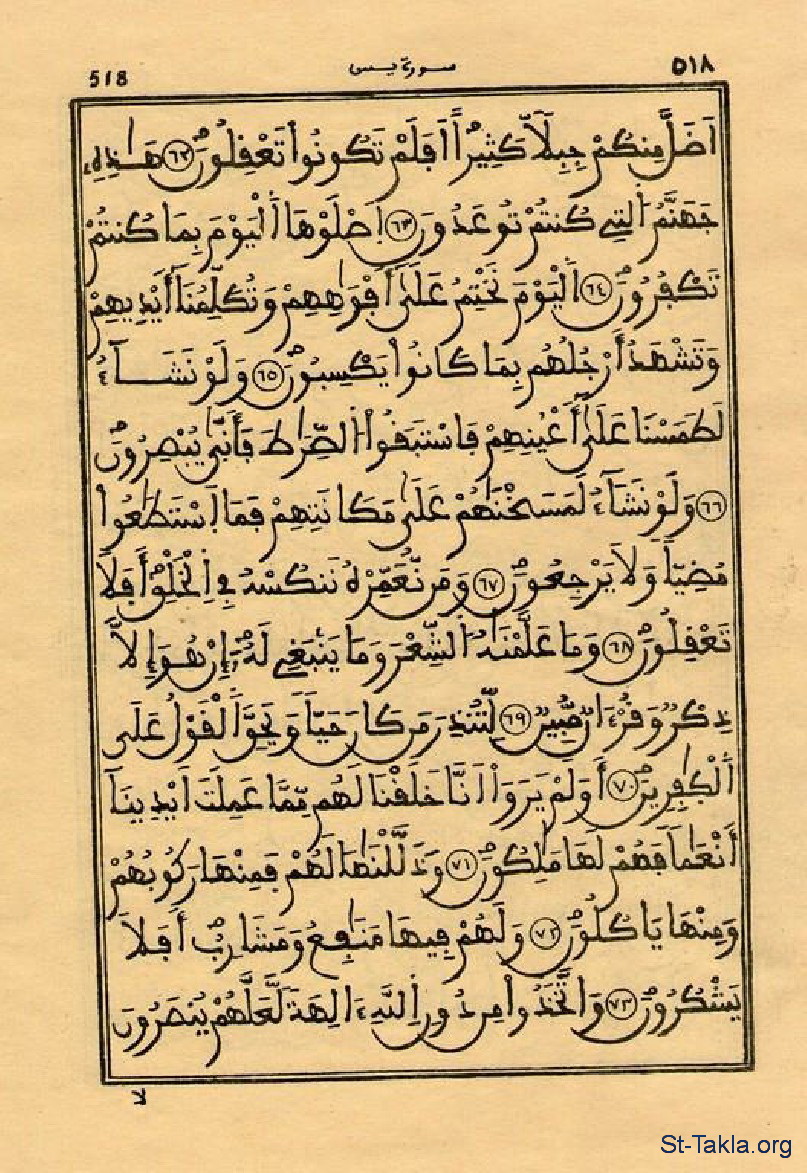 518 سورة يس ٥١٨
اَضَلَّ مِنكُمْ جِبِلّاً كَثِيراً اَفَلَمْ تَكُونُواْ تَعْفِلُونَ ٦٢ هَٰذِهِۦ
جَهَنَّمُ اَ۬لتِے كُنتُمْ تُوعَدُونَ ٦٣ اَ۪صْلَوْهَا اَ۬لْيَوْمَ بِمَا كُنتُمْ
تَكْفُرُونَ ٦٤ اَ۬لْيَوْمَ نَخْتِمُ عَلَىٰٓ أَفْوَٰهِهِمْ وَتُكَلِّمُنَآ أَيْدِيهِمْ
وَتَشْهَدُ أَرْجُلُهُم بِمَا كَانُواْ يَكْسِبُونَ ٦٥ وَلَوْ نَشَآءُ
لَطَمَسْنَا عَلَىٰٓ أَعْيُنِهِمْ فَاسْتَبَقُواْ اُ۬لصِّرَٰطَ فَأَنّۭيٰ يُبْصِرُونَ
٦٦ وَلَوْ نَشَآءُ لَمَسَخْنَٰهُمْ عَلَىٰ مَكَانَتِهِمْ فَمَا اَ۪سْتَطَٰعُواْ
مُضِيّاً وَلَا يَرْجِعُونَ ٦٧ وَمَن نُّعَمِّرْهُ نَنكُسْهُ فِے اِ۬لْخَلْقِ أَفَلَا
تَعْفِلُونَ ٦٨ وَمَا عَلَّمْنَٰهُ اُ۬لشِّعْرَ وَمَا يَنۢبَغِے لَهُۥٓ إِنْ هُوَ إِلَّا
ذِكْرٌ وَقُرْءَانٌ مُّبِينٌ ٦٩ لِّتُنذِرَ مَن كَانَ حَيّاً وَيَحِقَّ اَ۬لْقَوْلُ عَلَى
اَ۬لْكَٰفِرِينَ ٧٠ أَوَلَمْ يَرَوَاْ اَنَّا خَلَقْنَا لَهُم مِّمَّا عَمِلَتَ اَيْدِينَآ
أَنْعَٰماً فَهُمْ لَهَا مَٰلِكُونَ ٧١ وَذَلَّلْنَٰهَا لَهُمْ فَمِنْهَا رَكُوبُهُمْ
وَمِنْهَا يَاكُلُونَ ٧٢ وَلَهُمْ فِيهَا مَنَٰفِعُ وَمَشَارِبُ أَفَلَا
يَشْكُرُونَ ٧٣ وَاتَّخَذُواْ مِن دُونِ اِ۬للَّهِ ءَالِهَةً لَّعَلَّهُمْ يُنصَرُونَ
لا
St-Takla.org